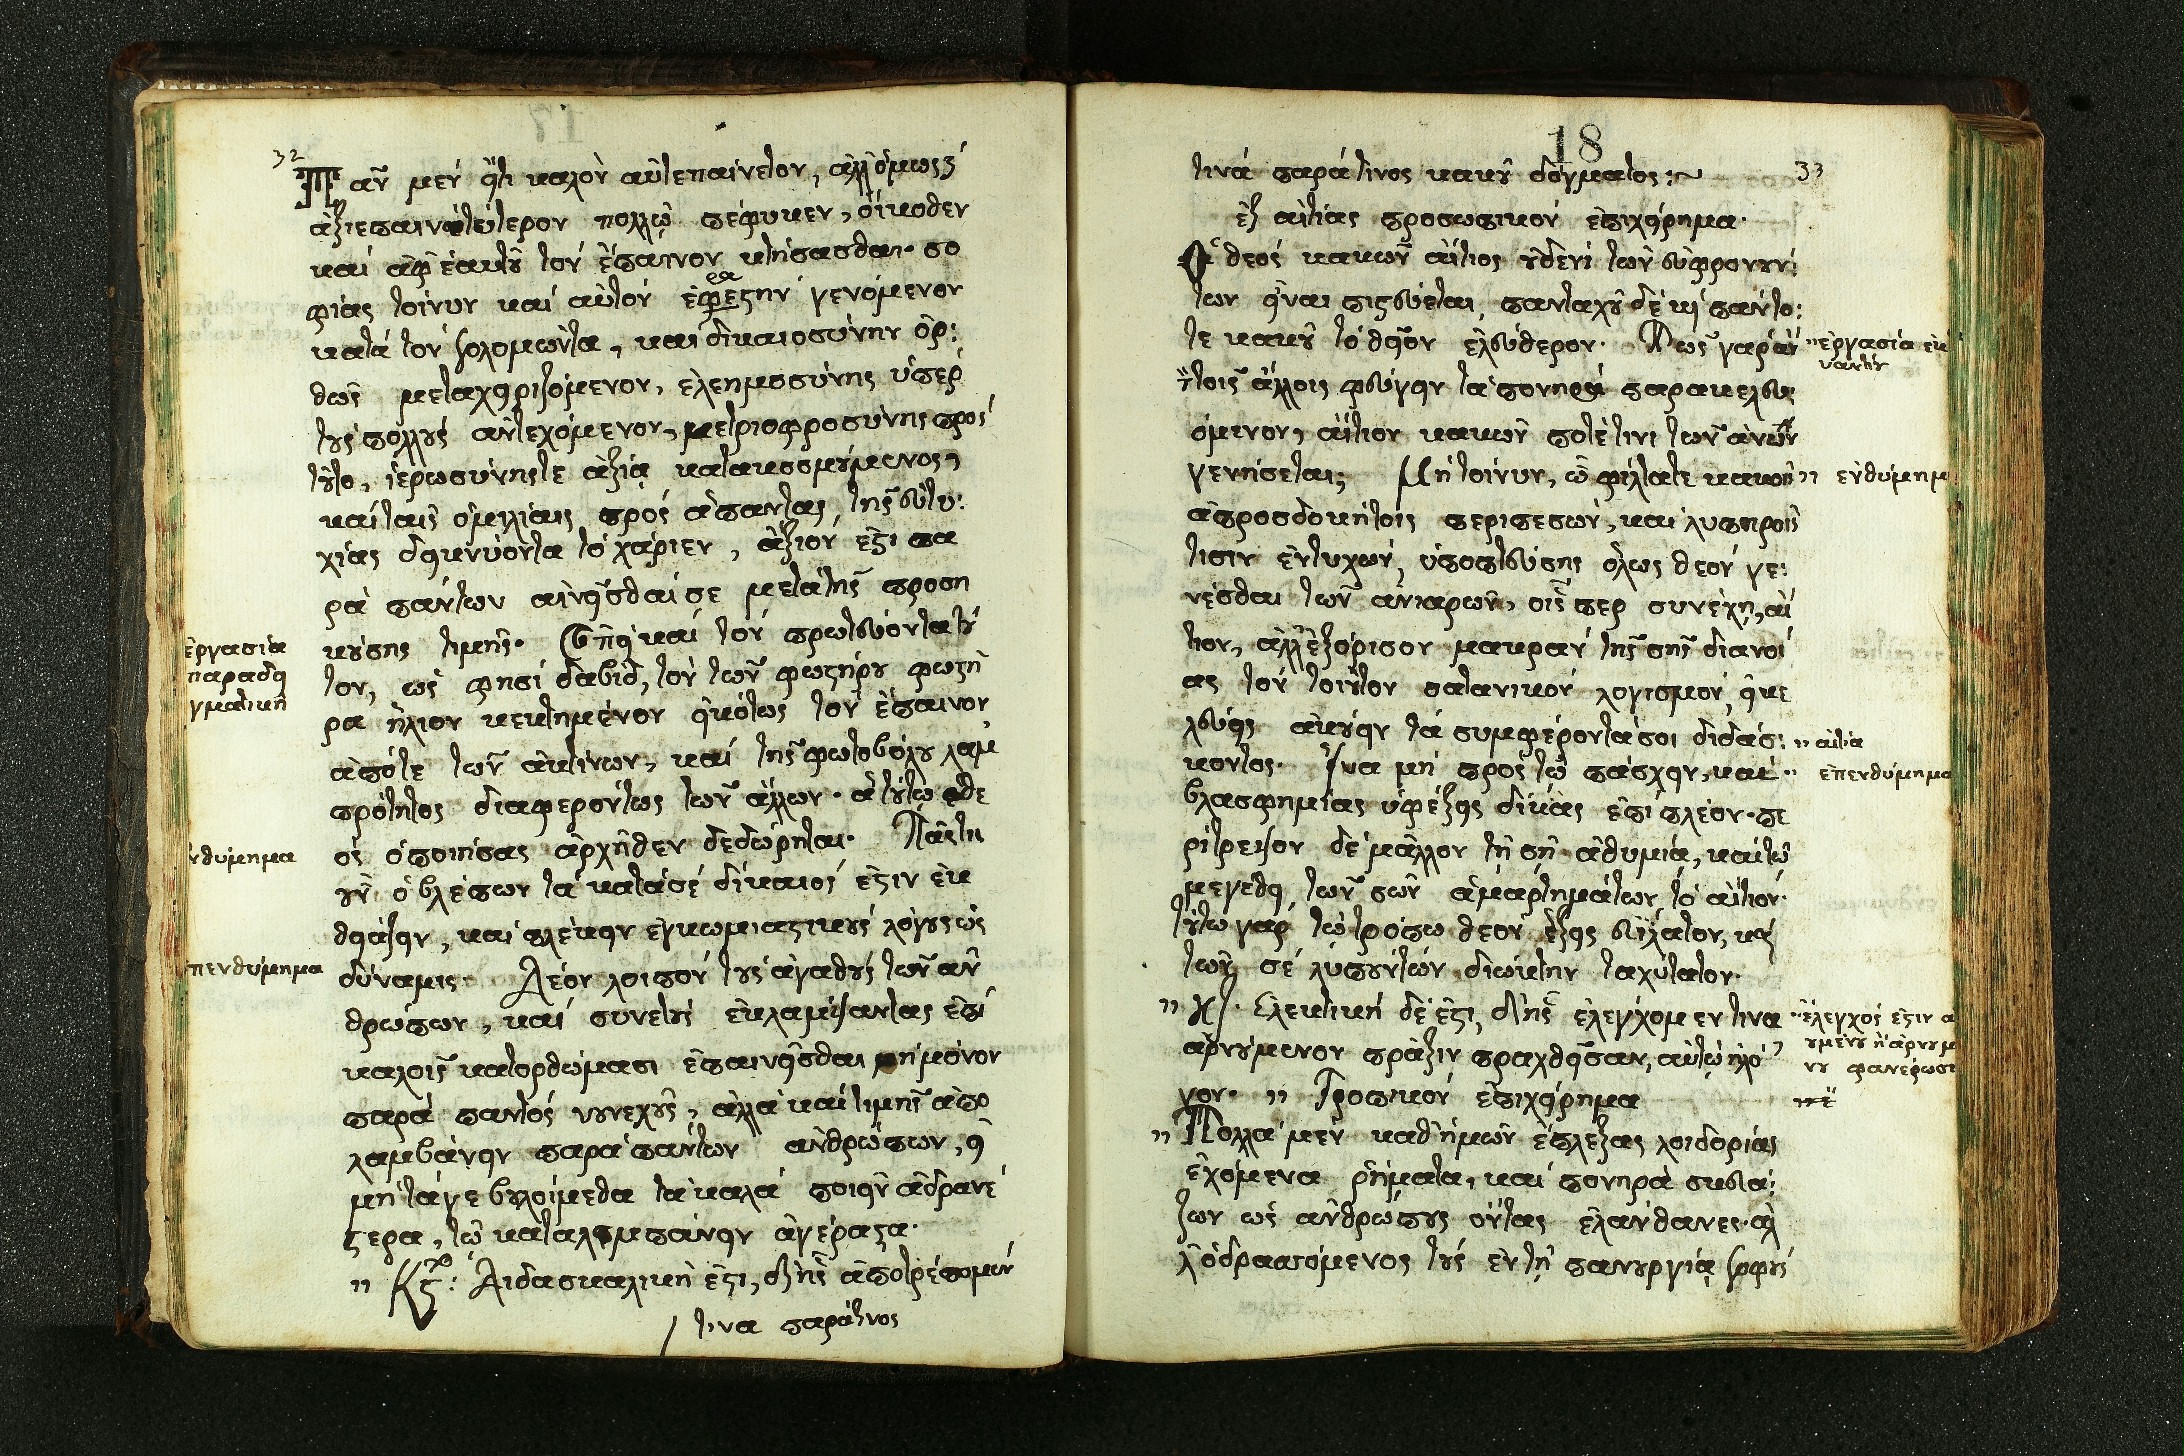 32
Πᾶν μὲν ὅ,τι καλὸν ἀξιεπαίνετον, ἀλλ' ὅμως
ἀξιεπαινετώτερον πολλῷ πέφυκεν, οἴκοθεν
καὶ ἀφ' ἑαυτοῦ τὸν ἔπαινον κτήσασθαι· σο
φίας τοίνυν καὶ αὐτὸν ἐραστὴν γενόμενον
κατὰ τὸν σολομῶντα, καὶ δικαιοσύνην ὀρ:
θῶς μεταχειριζόμενον, ἐλεημοσύνης ὑπὲρ
τοὺς πολλοὺς ἀντεχόμενον, μετριοφροσύνης πρὸς
τοῦτο, ἱερωσύνης τε ἀξίᾳ κατακοσμούμενος,
καὶ ταῖς ὁμιλίαις πρὸς ἅπαντας, τῆς εὐτυ:
χίας δεικνύοντα τὸ χάριεν, ἄξιον ἐστὶ πα
ρὰ πάντων αἰνεῖσθαί σε μετὰ τῆς προση
κούσης τιμῆς. Ἐπεὶ καὶ τὸν πρωτεύοντα τού
των, ὥς φησι δαβὶδ, τὸν τῶν φωστήρων φωστῆ
ρα ἥλιον κεκτημένον εἰκότως τὸν ἔπαινον,
ἀπό τε τῶν ἀκτίνων, καὶ τῆς φωτοβόλου λαμ
πρότητος διαφερόντως τῶν ἄλλων· ἃ τούτῳ θε
ὸς ὁ ποιήσας ἀρχῆθεν δεδώρηται. Πᾶς τις
οὖν ὁ βλέπων τὰ κατὰ σὲ δίκαιός ἐστιν ἐκ
θειάζειν, καὶ πλέκειν ἐγκωμιαστικοὺς λόγους ὡς
δύναμις. Δέον λοιπὸν τοὺς ἀγαθοὺς τῶν ἀν
θρώπων, καὶ συνετοὺς ἐκλάμψαντας ἐπὶ
καλοῖς κατορθώμασι ἐπαινεῖσθαι μὴ μόνον
παρὰ παντὸς νουνεχοῦς, ἀλλὰ καὶ τιμῆς ἀπο
λαμβάνειν παρὰ πάντων ἀνθρώπων, εἰ
μὴ τάγε βουλοίμεθα τὰ καλὰ ποιεῖν ἀδρανέ
στερα, τῷ καταλιμπάνειν ἀγέραστα.
" Κζ: Διδασκαλικὴ ἐστι, δι' ἧς ἀποτρέπομεν
τινα παρά τινος
ἐργασία
παραδει
γματικὴ
ἐνθύμημα
ἐπενθύμημα
18
33
τινὰ παρά τινος κακοῦ δόγματος:~
ἐξ αἰτίας προσωπικὸν ἐπιχείρημα.
Ὁ θεὸς κακῶν αἴτιος οὐδενὶ τῶν εὐφρονούν:
των εἶναι πιστεύεται, πανταχοῦ δὲ κὶ πάντο:
τε κακοῦ τὸ θεῖον ἐλεύθερον. Πῶς γὰρ ἂν
τοῖς ἄλλοις φεύγειν τὰ πονηρὰ παρακελευ:
όμενον, αἴτιον κακῶν ποτέ τινι τῶν ἀνων
γενήσεται; Μὴ τοίνυν, ὦ φίλτατε κακοῖς
ἀπροσδοκήτοις περιπεσὼν, καὶ λυπηροῖς
τισιν ἐντυχὼν, ὑποπτεύσῃς ὅλως θεὸν γε:
νέσθαι τῶν ἀνιαρῶν, οἷς περ συνέχῃ, αἴ
τιον, ἀλλ' ἐξόρισον μακρὰν τῆς σῆς διανοί
ας τὸν τοιοῦτον σατανικὸν λογισμὸν,
ἀκούειν τὰ συμφέροντά σοι διδάσ:
κοντος. Ἵνα μὴ πρὸς τῷ πάσχειν, καὶ
βλασφημίας ὑφέξῃς δίκας ἐπὶ πλέον· πε
ρίτρεψον δὲ μᾶλλον τῇ σῇ ἀθυμίᾳ, καὶ τῷ
μεγέθει τῶν σῶν ἁμαρτημάτων τὸ αἴτιον.
τούτῳ γὰρ τῷ τρόπῳ θεὸν ἕξεις εὐίλατον, καὶ
τῶν σὲ λυπούντων διώκτην ταχύτατον.
" Κη. Ἐλεκτικὴ δὲ ἐστι, δι' ἧς ἐλέγχομεν τινα
ἀρνούμενον πρᾶξιν πραχθεῖσαν,
" Τροπικὸν ἐπιχείρημα
" Πολλὰ μὲν καθ' ἡμῶν ἔπλεξας λοιδορίας
ἐχόμενα ῥήματα, καὶ πονηρὰ σκευά:
ζων ὡς ἀνθρώπους ὄντας ἐλάνθανες· ἀλ
λ' ὁ δρασσόμενος τοὺς ἐν τῇ πανουργίᾳ σοφοὺς
" ἐργασία
" ἐνθύμημ
" αἰτία
" ἐπενθύμημα
" ἔλεγχός ἐστιν
φανέρωσι